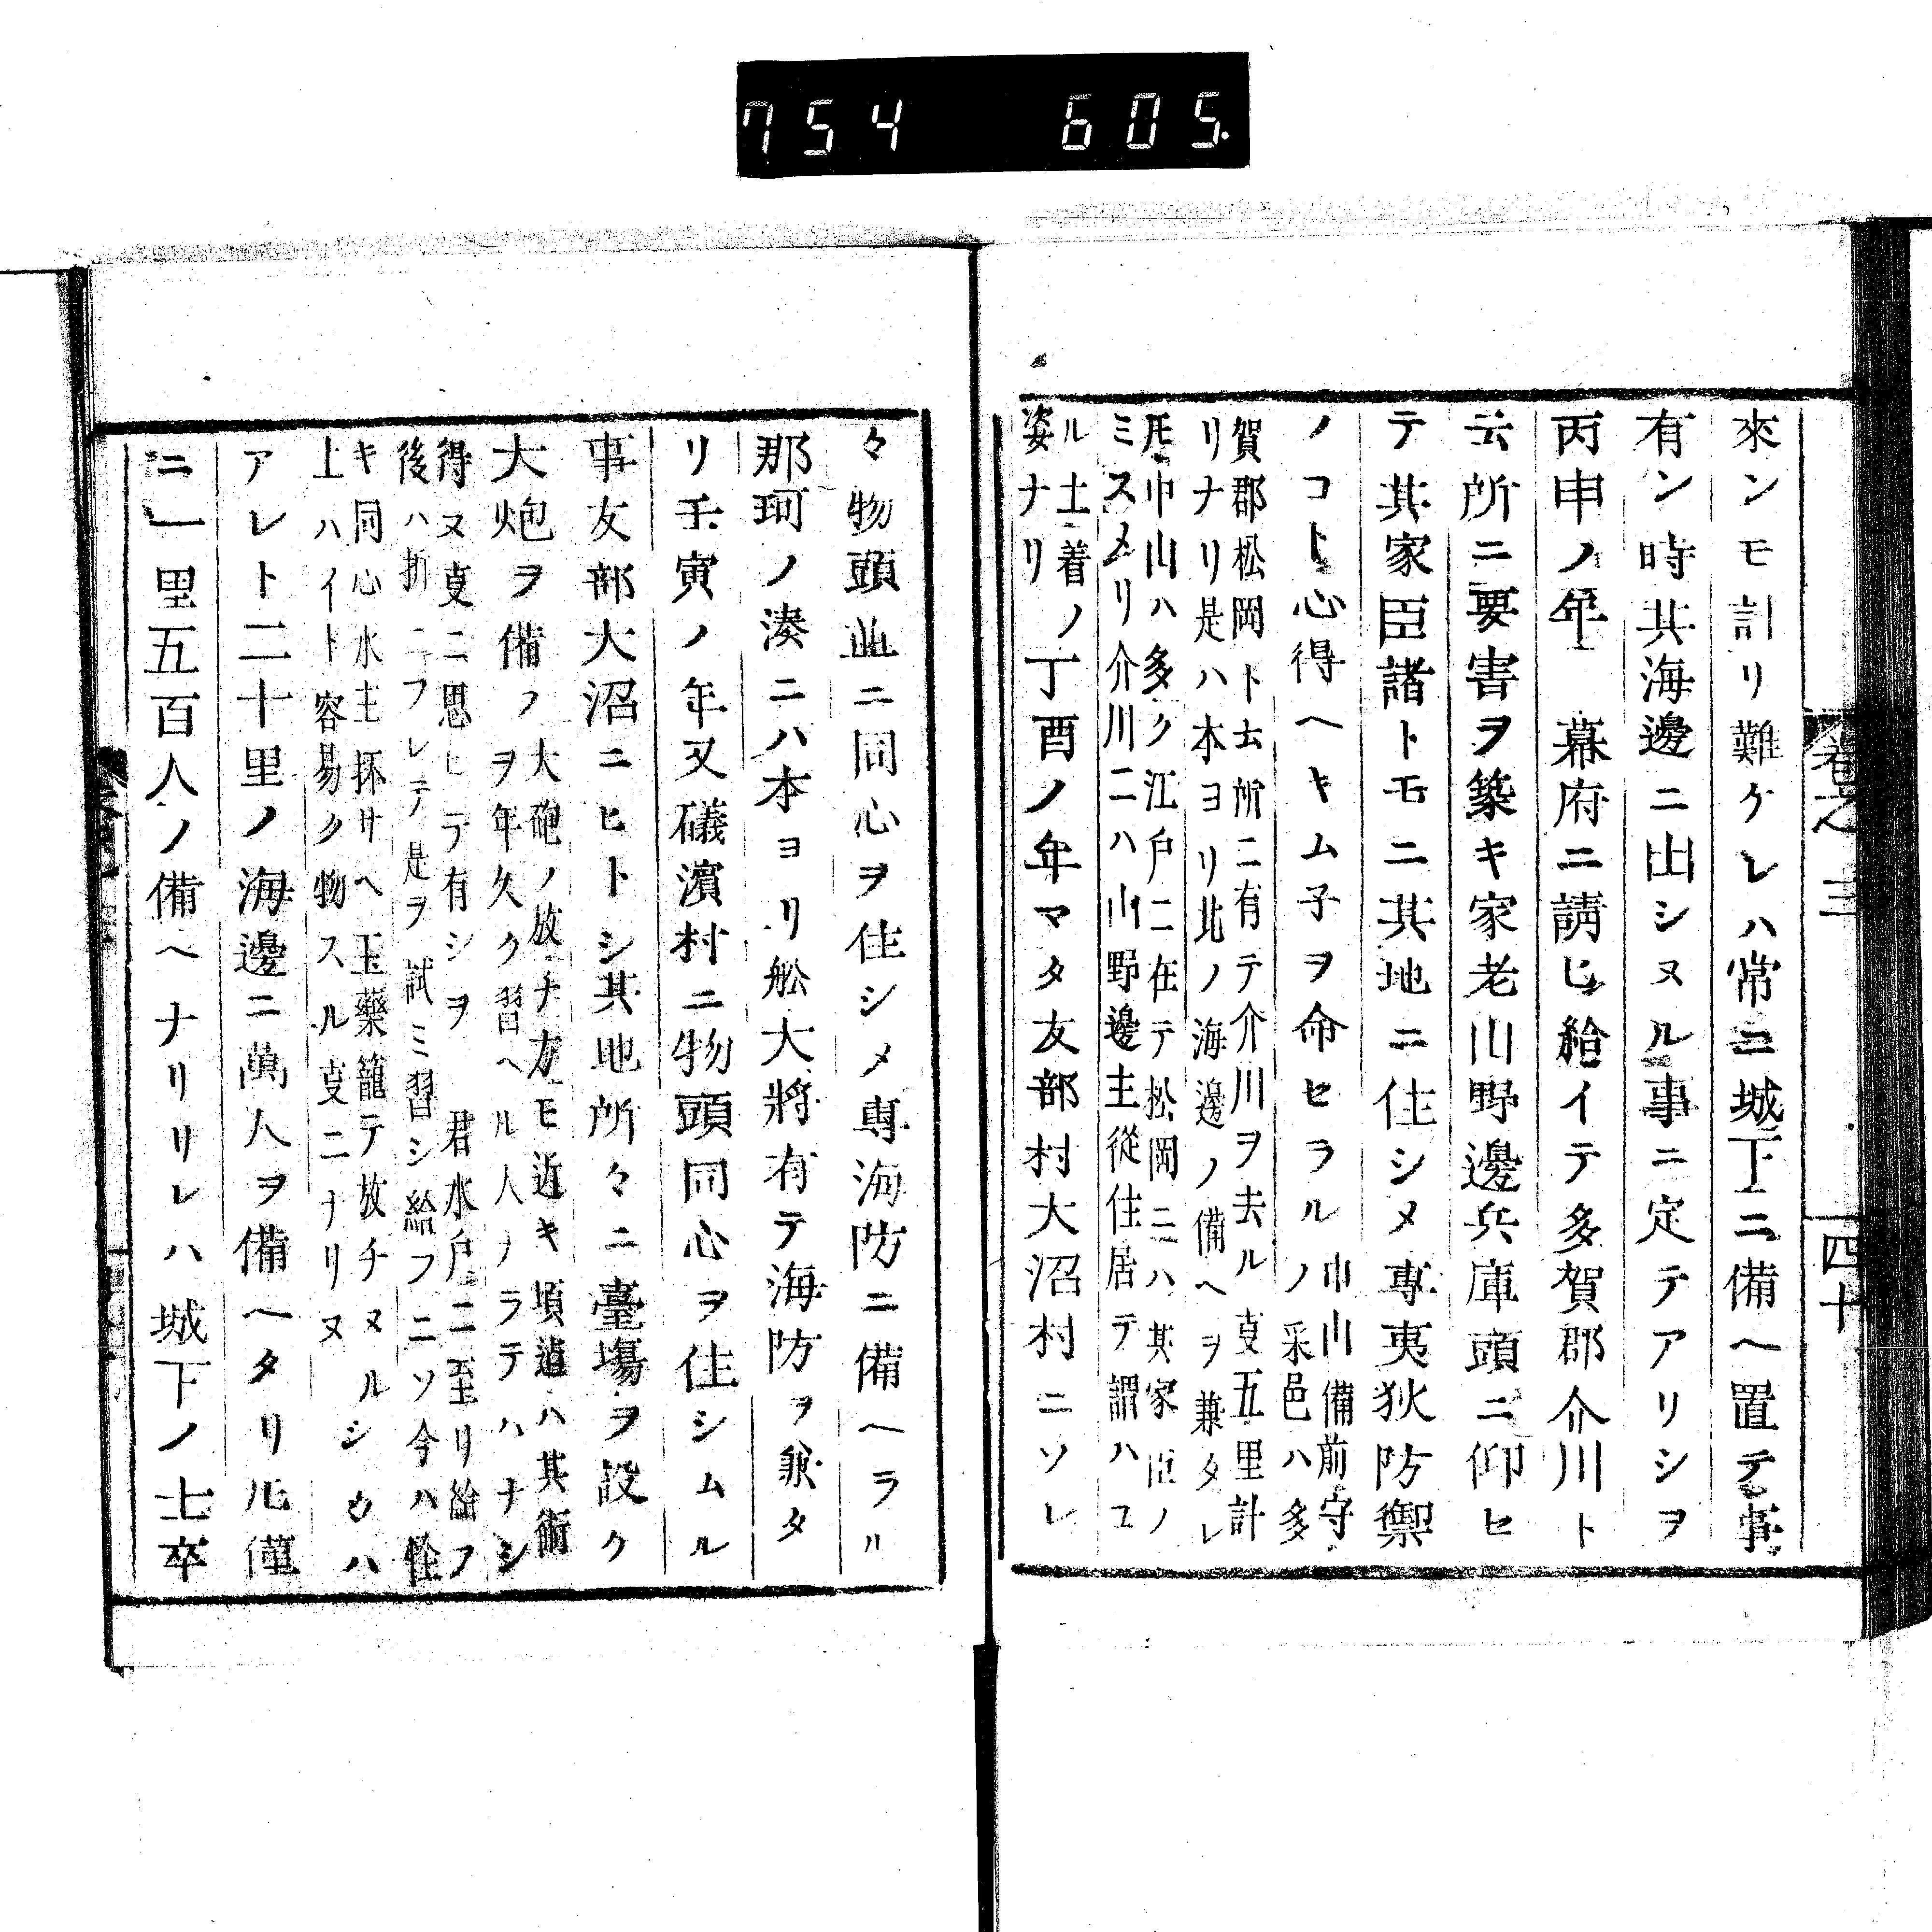 754 605.
卷之三 四十
來ンモ計リ難ケレハ常ニ城下ニ備ヘ置テ事
有ン時其海邊ニ出シヌル事ニ定テアリシヲ
丙申ノ年 幕府ニ請ヒ給イテ多賀郡介川ト
云所ニ要害ヲ築キ家老山野邊兵庫頭ニ仰ヒ
テ其家臣諸トモニ其地ニ住シメ專夷狄防禦
ノコト心得ヘキム子ヲ命セラルノ
中山備前守
采邑ハ多
賀郡松岡ト云所ニ有テ介川ヲ去ル 叓五里計
リナリ是ハ本ヨリ北ノ海邊ノ備ヘヲ兼タレ
𪜈中山ハ多ク江戸ニ在テ松岡ニハ其家臣ノ
ミスメリ介川ニハ山野邊主從住居テ謂ハユ
ル土着ノ
姿ナリ
丁酉ノ年マタ友部村大沼村ニソレ
々物頭並ニ同心ヲ住シメ専海防ニ備ヘラル
那珂ノ湊ニハ本ヨリ舩大將有テ海防ヲ兼タ
リ壬寅ノ年又礒濱村ニ物頭同心ヲ住シムル
事友部大沼ニヒトシ其地所々ニ臺塲ヲ設ク
大炮ヲ備フ
大砲ノ放チ方モ近キ頃迠ハ其術
ヲ年久ク習ヘル人ナラテハナシ
得ヌ叓ニ思ヒテ有シヲ 君水戸ニ至リ給フ
後ハ折ニフレテ是ヲ試ミ習シ給フニソ今ハ
キ同心水主抔サヘ玉藥籠テ放チヌルシウハ
上ハイト容易ク物スル叓ニナリヌ
アレト二十里ノ海邊ニ萬人ヲ備ヘタリ𪜈僅
ニ一里五百人ノ備ヘナリリレハ城下ノ士卒